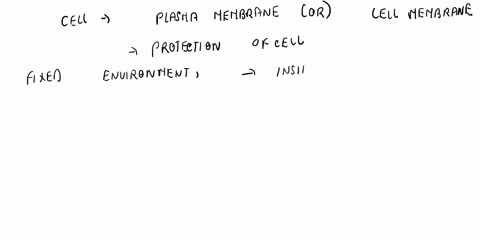 CELL → PLASMA MEMBRANE (OR) CELL MEMBRANE
→ PROTECTION OF CELL
FIXED ENVIRONMENT, → INSII